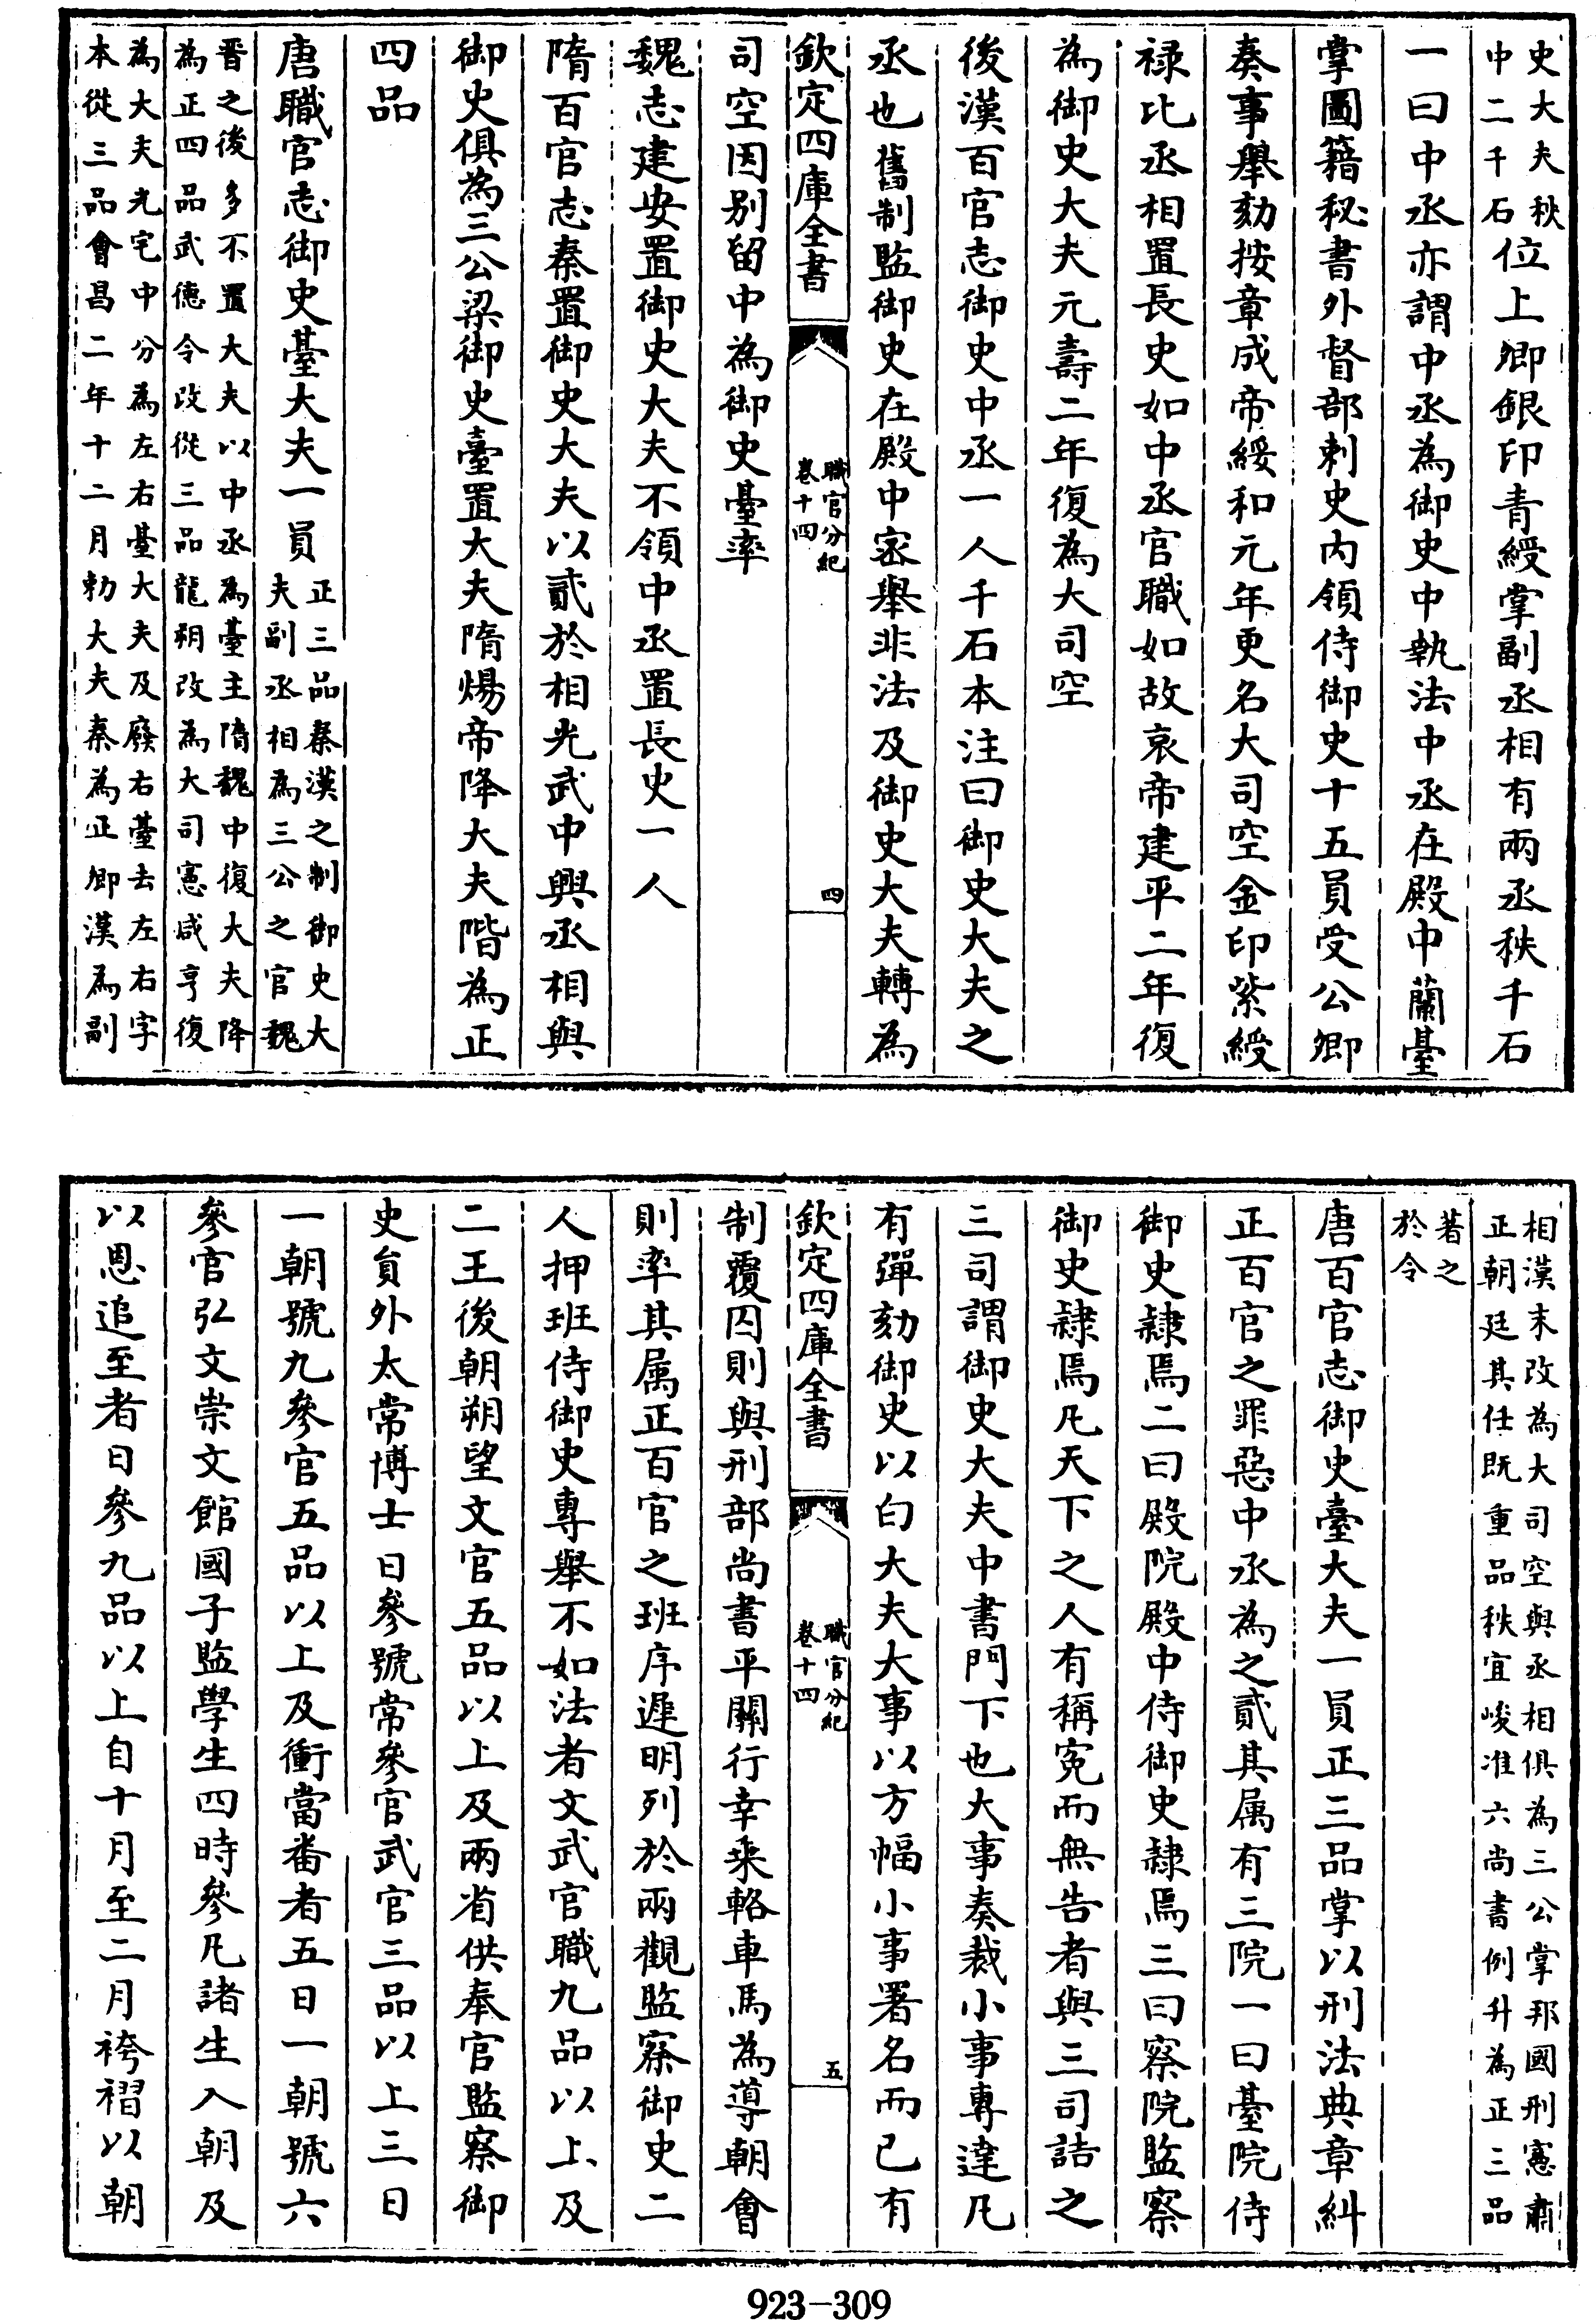 史大夫秩
中二千石位上卿銀印青綬掌副丞相有兩丞秩千石
一曰中丞亦謂中丞為御史中執法中丞在殿中蘭臺
掌圖籍秘書外督部刺史内領侍御史十五員受公卿
奏事舉劾按章成帝綏和元年更名大司空金印紫綬
祿比丞相置長史如中丞官職如故哀帝建平二年復
為御史大夫元壽二年復為大司空
後漢百官志御史中丞一人千石本注曰御史大夫之
丞也舊制監御史在殿中密舉非法及御史大夫轉為
欽定四庫全書
職官分紀
卷十四
四
司空因别留中為御史臺率
魏志建安置御史大夫不領中丞置長史一人
隋百官志秦置御史大夫以貳於相光武中興丞相與
御史俱為三公梁御史臺置大夫隋煬帝降大夫階為正
四品
唐職官志御史臺大夫一員正三品秦漢之制御史大
夫副丞相為三公之官魏
晉之後多不置大夫以中丞為臺主隋魏中復大夫降
為正四品武德令改從三品龍朔改為大司憲咸亨復
為大夫光宅中分為左右臺大夫及廢右臺去左右字
本從三品會昌二年十二月勑大夫秦為正卿漢為副
相漢末改為大司空與丞相俱為三公掌邦國刑憲肅
正朝廷其任既重品秩宜峻准六尚書例升為正三品
著之
於令
唐百官志御史臺大夫一員正三品掌以刑法典章糾
正百官之罪惡中丞為之貳其属有三院一曰臺院侍
御史隸焉二曰殿院殿中侍御史隸焉三曰察院監察
御史隸焉凡天下之人有稱寃而無告者與三司詰之
三司謂御史大夫中書門下也大事奏裁小事專達凡
有彈劾御史以白大夫大事以方幅小事署名而已有
欽定四庫全書
職官分紀
卷十四
五
制覆囚則與刑部尚書平閱行幸乘輅車馬為導朝會
則率其属正百官之班序遲明列於兩觀監察御史二
人押班侍御史專舉不如法者文武官職九品以上及
二王後朝朔望文官五品以上及兩省供奉官監察御
史員外太常博士日參號常參官武官三品以上三日
一朝號九參官五品以上及衝當番者五日一朝號六
參官弘文崇文館國子監學生四時參凡諸生入朝及
以恩追至者日參九品以上自十月至二月袴褶以朝
923-309